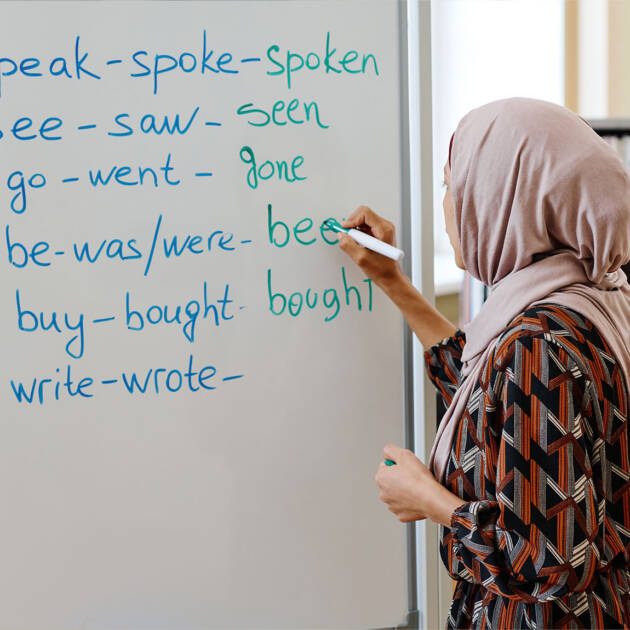 peak - spoke - spoken
ee - saw - seen
go - went - gone
be - was/were - bee
buy - bought - bought
write - wrote -